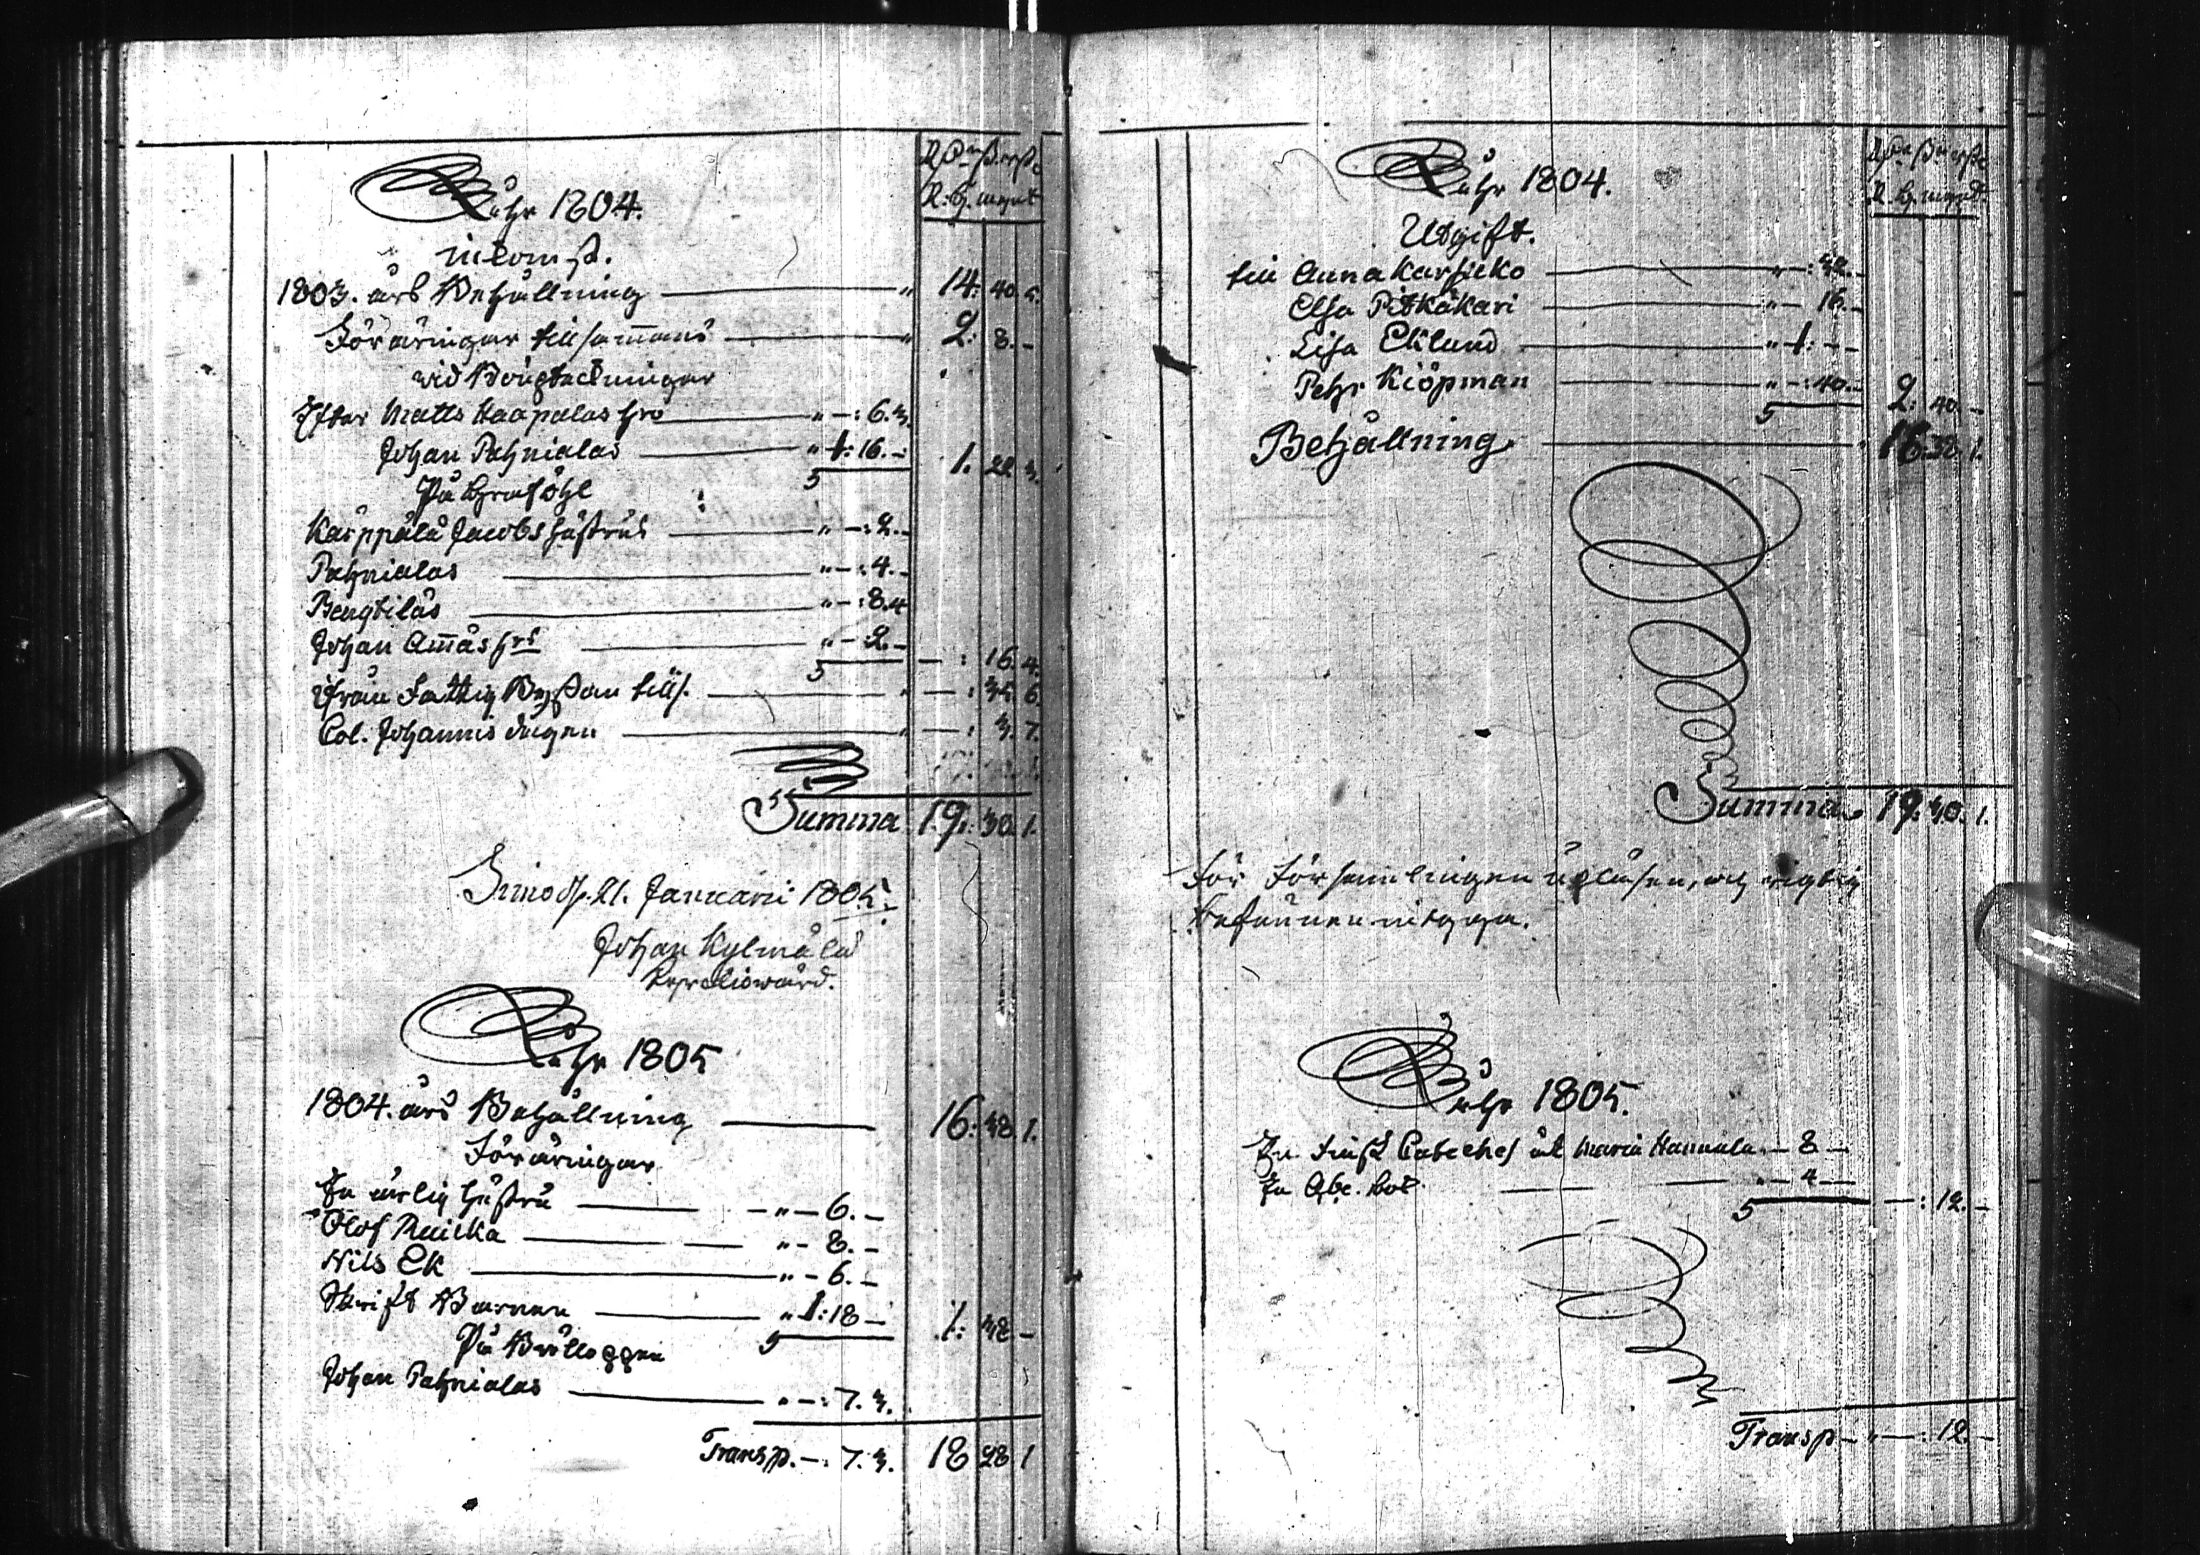 Åhr 1804.
inkomst.
1803. års Behållning 14: 40. 5.
Föräringar tillsam̅ans 2: 8. -
wid Bouptekningar
Efter Matts Haapalas hro " - : 6. 3.
Johan Pahnialas " 1: 16. - 1. 22 3.
På Grafööhl
Karppala Jacobs hustrus " - : 2. -
Pahnialas " - : 4. -
Bengtilas " - : 8. 4
Johan Am̅as hrs " - 2. - - : 16. 4.
från Fattig Byssan tills. " - : 35 6.
Col. Johannis dagen " - : 3. 7.
Summa 19: 30. 1.
Simo d. 21. Januarii 1805.
Johan Kylmälä
Åhr 1805
1804. års Behållning 16: 38 1.
Föräringar
En ärlig hustru - " - 6. -
Olof Kuilka " - 8. -
Nils Ek " - 6. -
Skrift Barnen " 1: 18 - 1: 38 -
På Brölloppen
Johan Pahnialas " - : 7. 3.
Transp. - : 7. 3. 18 28 1
Åhr 1804.
Utgift.
till Anna Karsikko " - : 32. -
Elsa Pitkäkari " - 16. -
Lisa Eklund " 1: - -
Pehr Kiöpman " - : 40. - 2: 40. -
Behållning 16. 38. 1.
Summa 19: 30. 1.
För Församlingen upläsen, och rigtig
befunnen intygga.
Åhr 1805.
En Finsk Cateches åt Maria Hannula - 8 -
En Abc. bok " - 4 - - : 12. -
Transp. - " - : 12. -